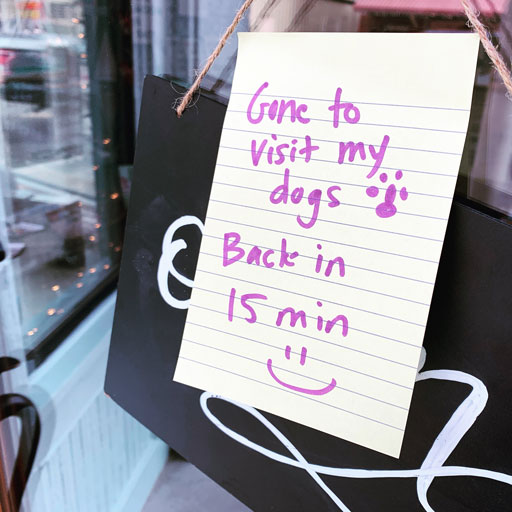 Gone to
visit my
dogs
Back in
15 min